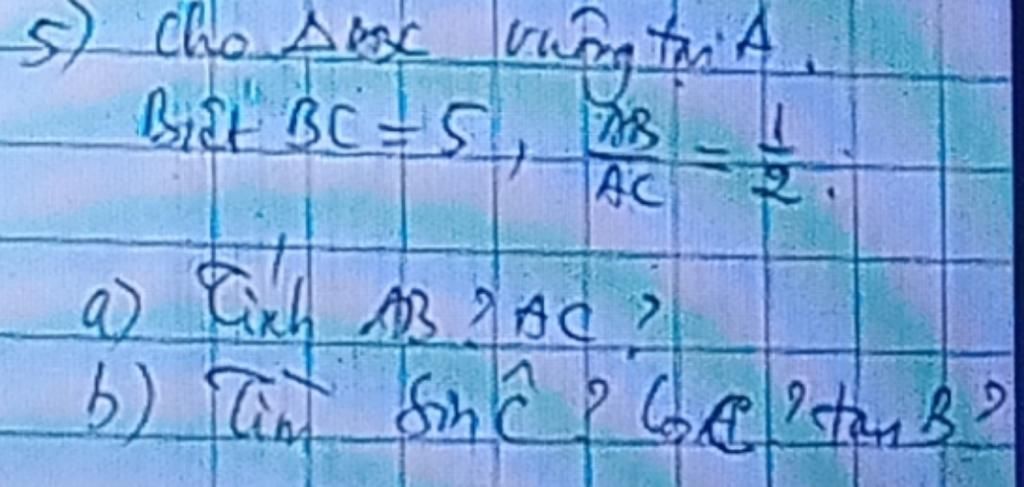 5) Cho ΔABC vuông tại A.
Biết BC = 5, AB/AC = 1/2.
a) Tính AB? AC?
b) Tìm Sin Ĉ? Cos C? tan B?